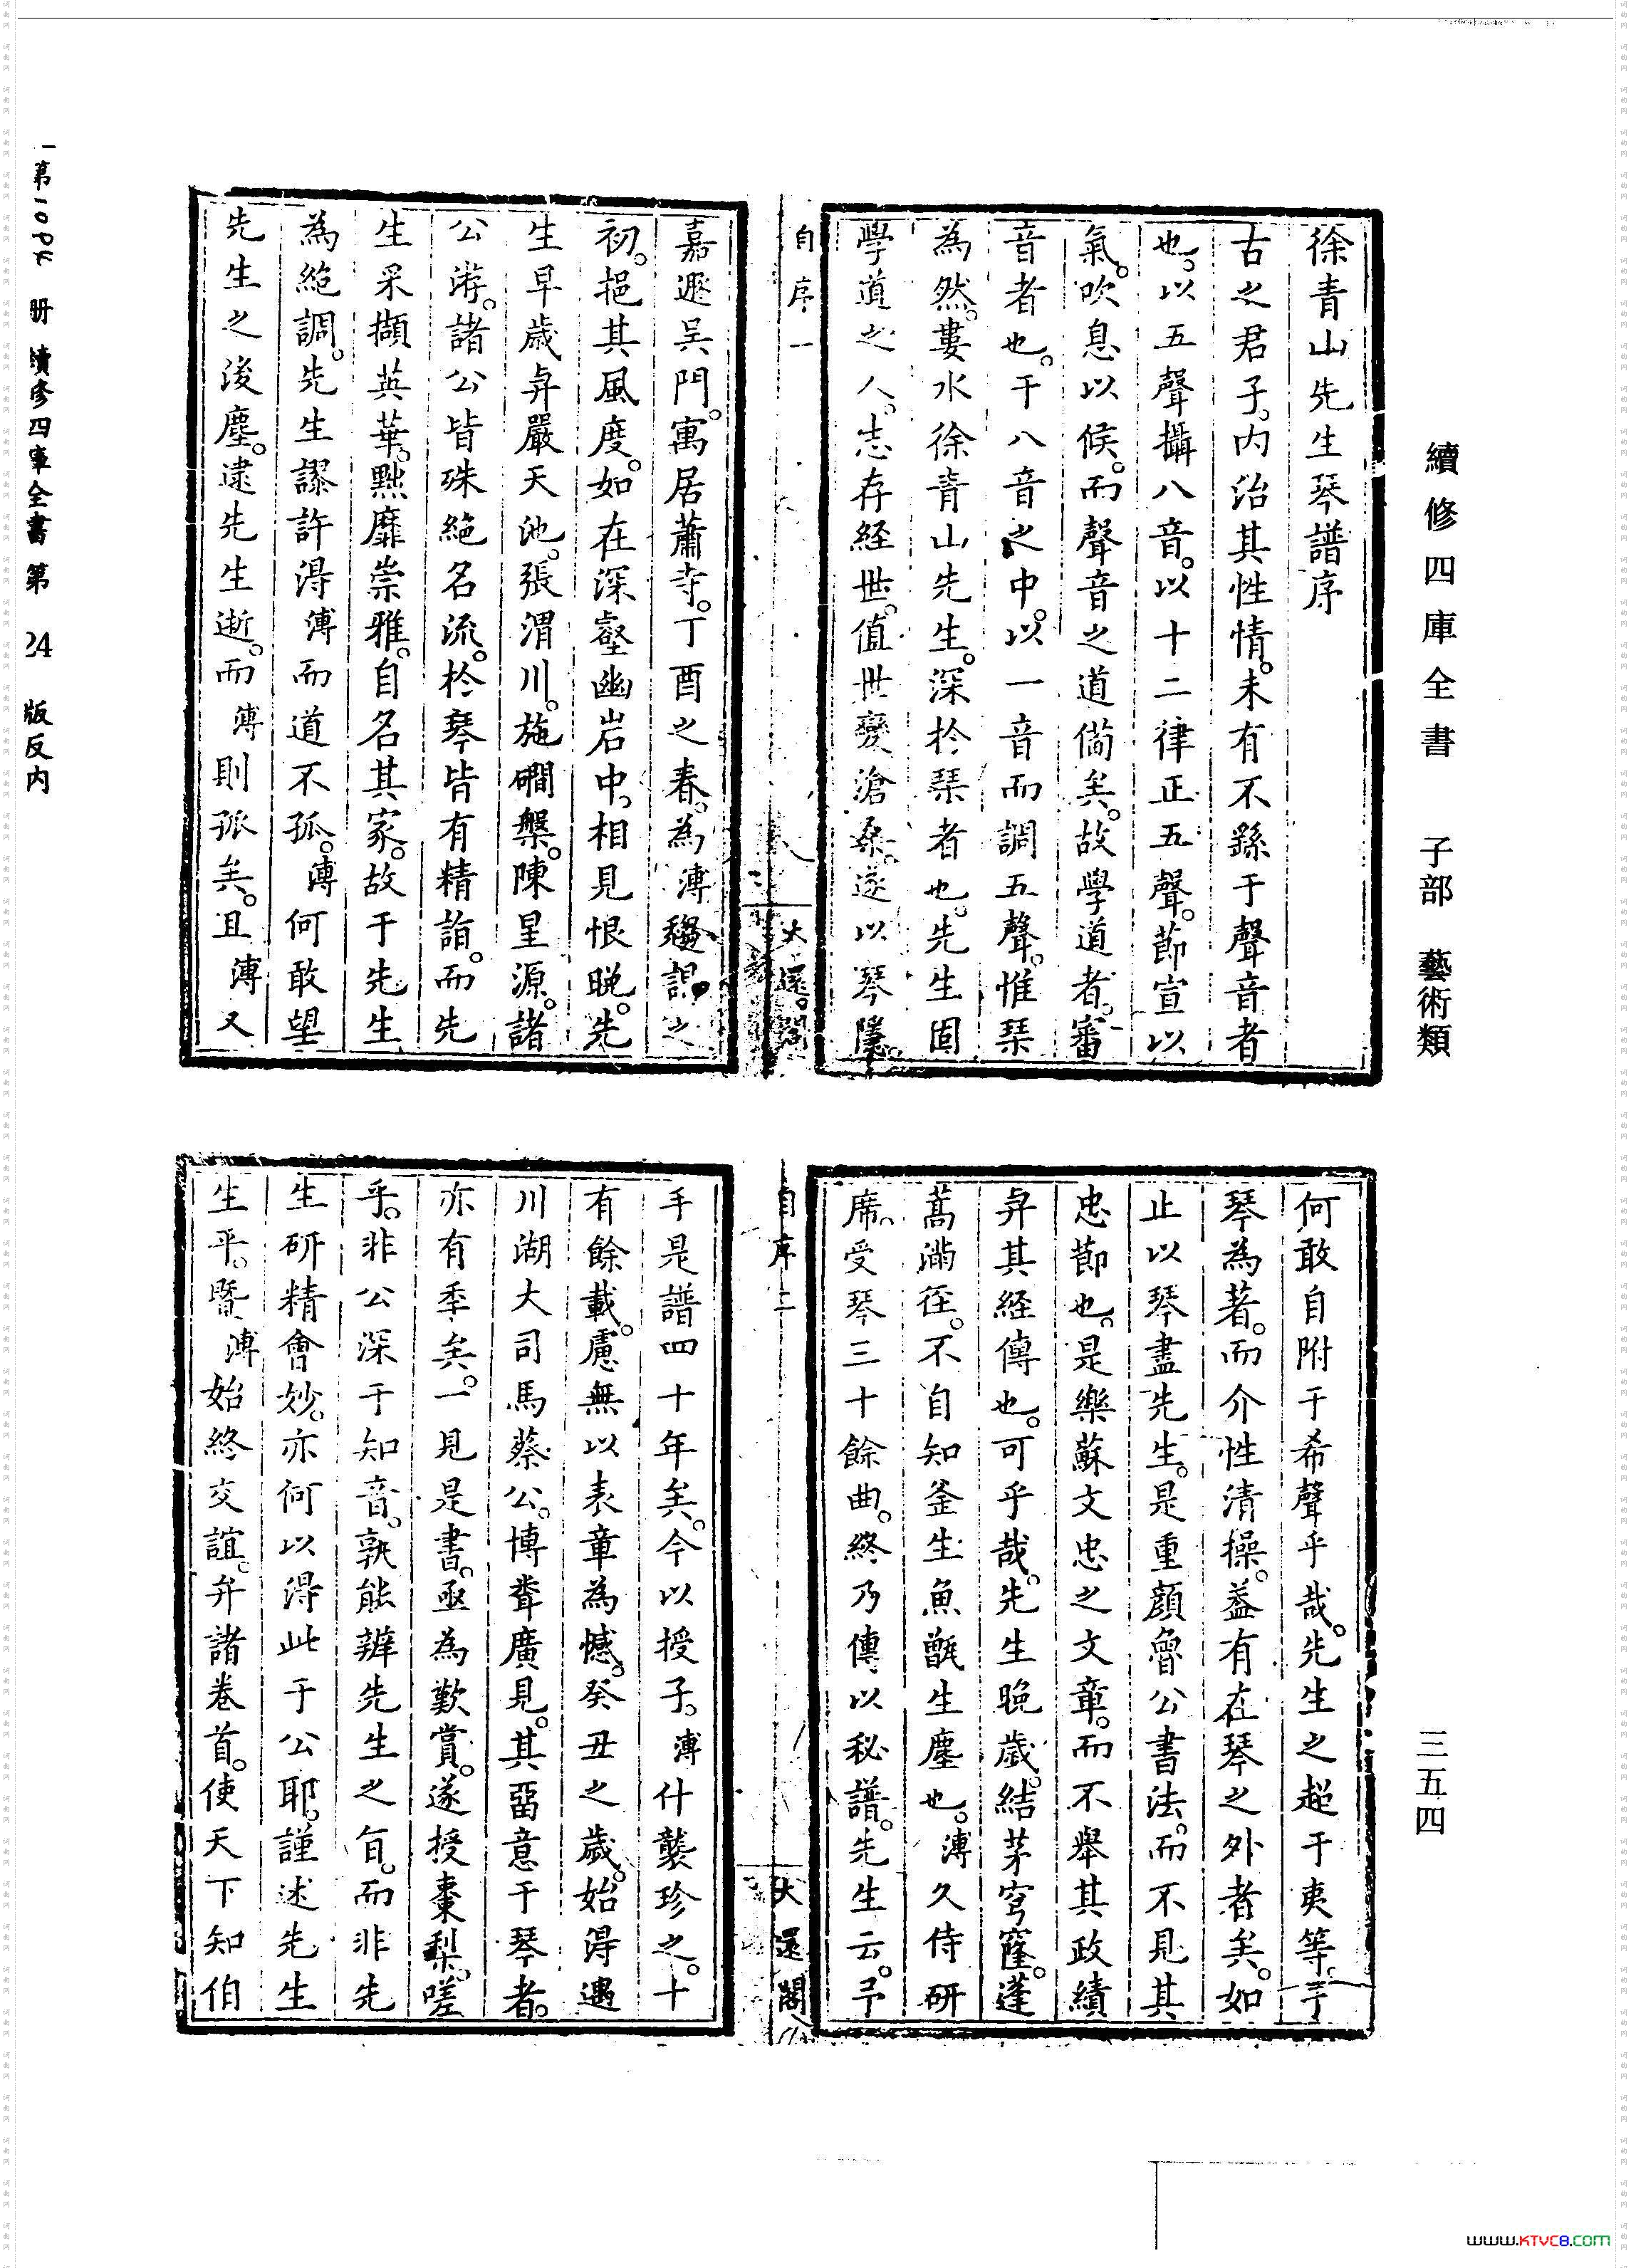 續修四庫全書 子部 藝術類
三五四
徐青山先生琴譜序
古之君子。内治其性情。未有不繇于聲音者
也。以五聲攝八音。以十二律正五聲。節宣以
氣。吹息以候。而聲音之道備矣。故學道者。審
音者也。于八音之中。以一音而調五聲。惟琹
為然。婁水徐青山先生。深於琹者也。先生固
學道之人。志存経世。值世變滄桑。遂以琴隱。
自序一
大還閣
嘉遯吴門。寓居蕭寺。丁酉之春。為溥
初。挹其風度。如在深壑幽岩中。相見恨晚。先
生早歲與嚴天池。張渭川。施磵槃。陳星源。諸
公游。諸公皆殊絶名流。於琴皆有精詣。而先
生采擷英華。黜靡崇雅。自名其家。故于先生
為絶調。先生謬許得溥而道不孤。溥何敢望
先生之後塵。逮先生逝。而溥則孤矣。且溥又
何敢自附于希聲乎哉。先生之超于夷等。于
琴為著。而介性清操。盖有在琴之外者矣。如
止以琴盡先生。是重顔魯公書法。而不見其
忠節也。是樂蘇文忠之文章。而不舉其政績
與其経傳也。可乎哉。先生晚歲。結茅穹窿。蓬
蒿滿徑。不自知釜生魚甑生塵也。溥久侍研
席。受琴三十餘曲。終乃傳以秘譜。先生云。予
自序二
大還閣
手是譜四十年矣。今以授子。溥什襲珍之。十
有餘載。慮無以表章為憾。癸丑之歲。始得遇
川湖大司馬蔡公。博聋廣見。其留意于琴者。
亦有季矣。一見是書。亟為歎賞。遂授棗梨。嗟
乎。非公深于知音。孰能辨先生之旨。而非先
生研精會妙。亦何以得此于公耶。謹述先生
生平。暨溥始終交誼。弁諸巻首。使天下知伯
册 續修四庫全書 第 24 版反内
www.KTVC8.com